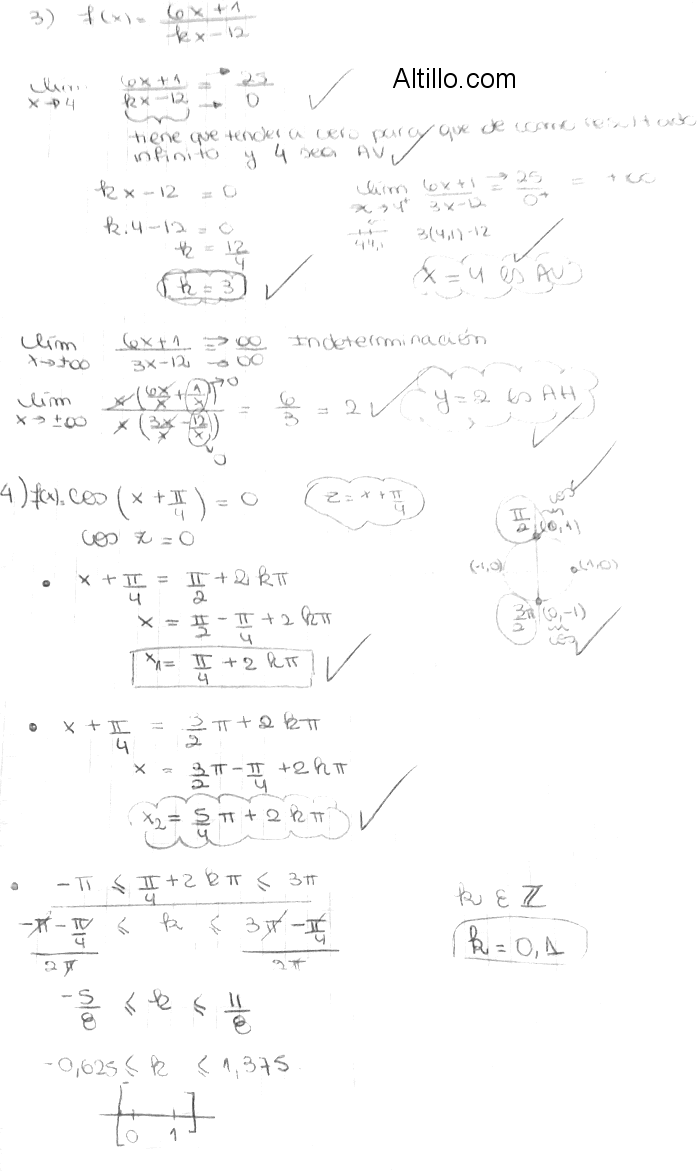 3) f(x) = (6x+1)/(kx-12)
Altillo.com
lim x→4 (6x+1)/(kx-12) = → 25 / → 0 ✓
tiene que tender a cero para que de como resultado
infinito y 4 sea AV ✓
kx-12 = 0
k.4-12 = 0
k = 12/4
k = 3 ✓
lim x→4⁺ (6x+1)/(3x-12) = → 25/0⁺ = +∞
3(4,1)-12
x = 4 es AV ✓
lim x→±∞ (6x+1)/(3x-12) = → ∞ / → ∞ Indeterminación
lim x→±∞ x(6x/x + 1/x)→0 / x(3x/x - 12/x)→0 = 6/3 = 2 ✓ y=2 es AH ✓
4) f(x)= cos(x + π/4) = 0 z = x + π/4
cos z = 0
π/2 (0,1) cos ✓
(-1,0) (1,0)
3π/2 (0,-1) cos ✓
• x + π/4 = π/2 + 2kπ
x = π/2 - π/4 + 2kπ
x₁ = π/4 + 2kπ ✓
• x + π/4 = 3/2 π + 2kπ
x = 3/2 π - π/4 + 2kπ
x₂ = 5/4 π + 2kπ ✓
• -π ≤ π/4 + 2kπ ≤ 3π
(-π - π/4)/2π ≤ k ≤ (3π - π/4)/2π
k ∈ Z
k = 0,1
-5/8 ≤ k ≤ 11/8
-0,625 ≤ k ≤ 1,375
0 1